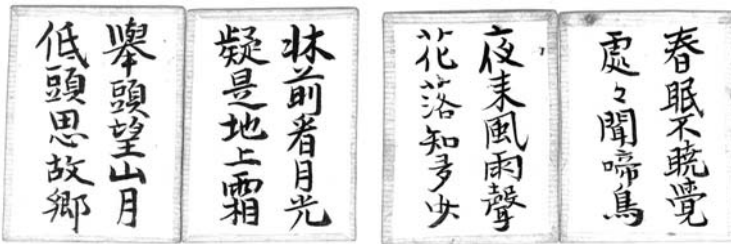 春眠不曉覺
處々聞啼鳥
夜来風雨聲
花落知多少
牀前看月光
疑是地上霜
舉頭望山月
低頭思故鄉